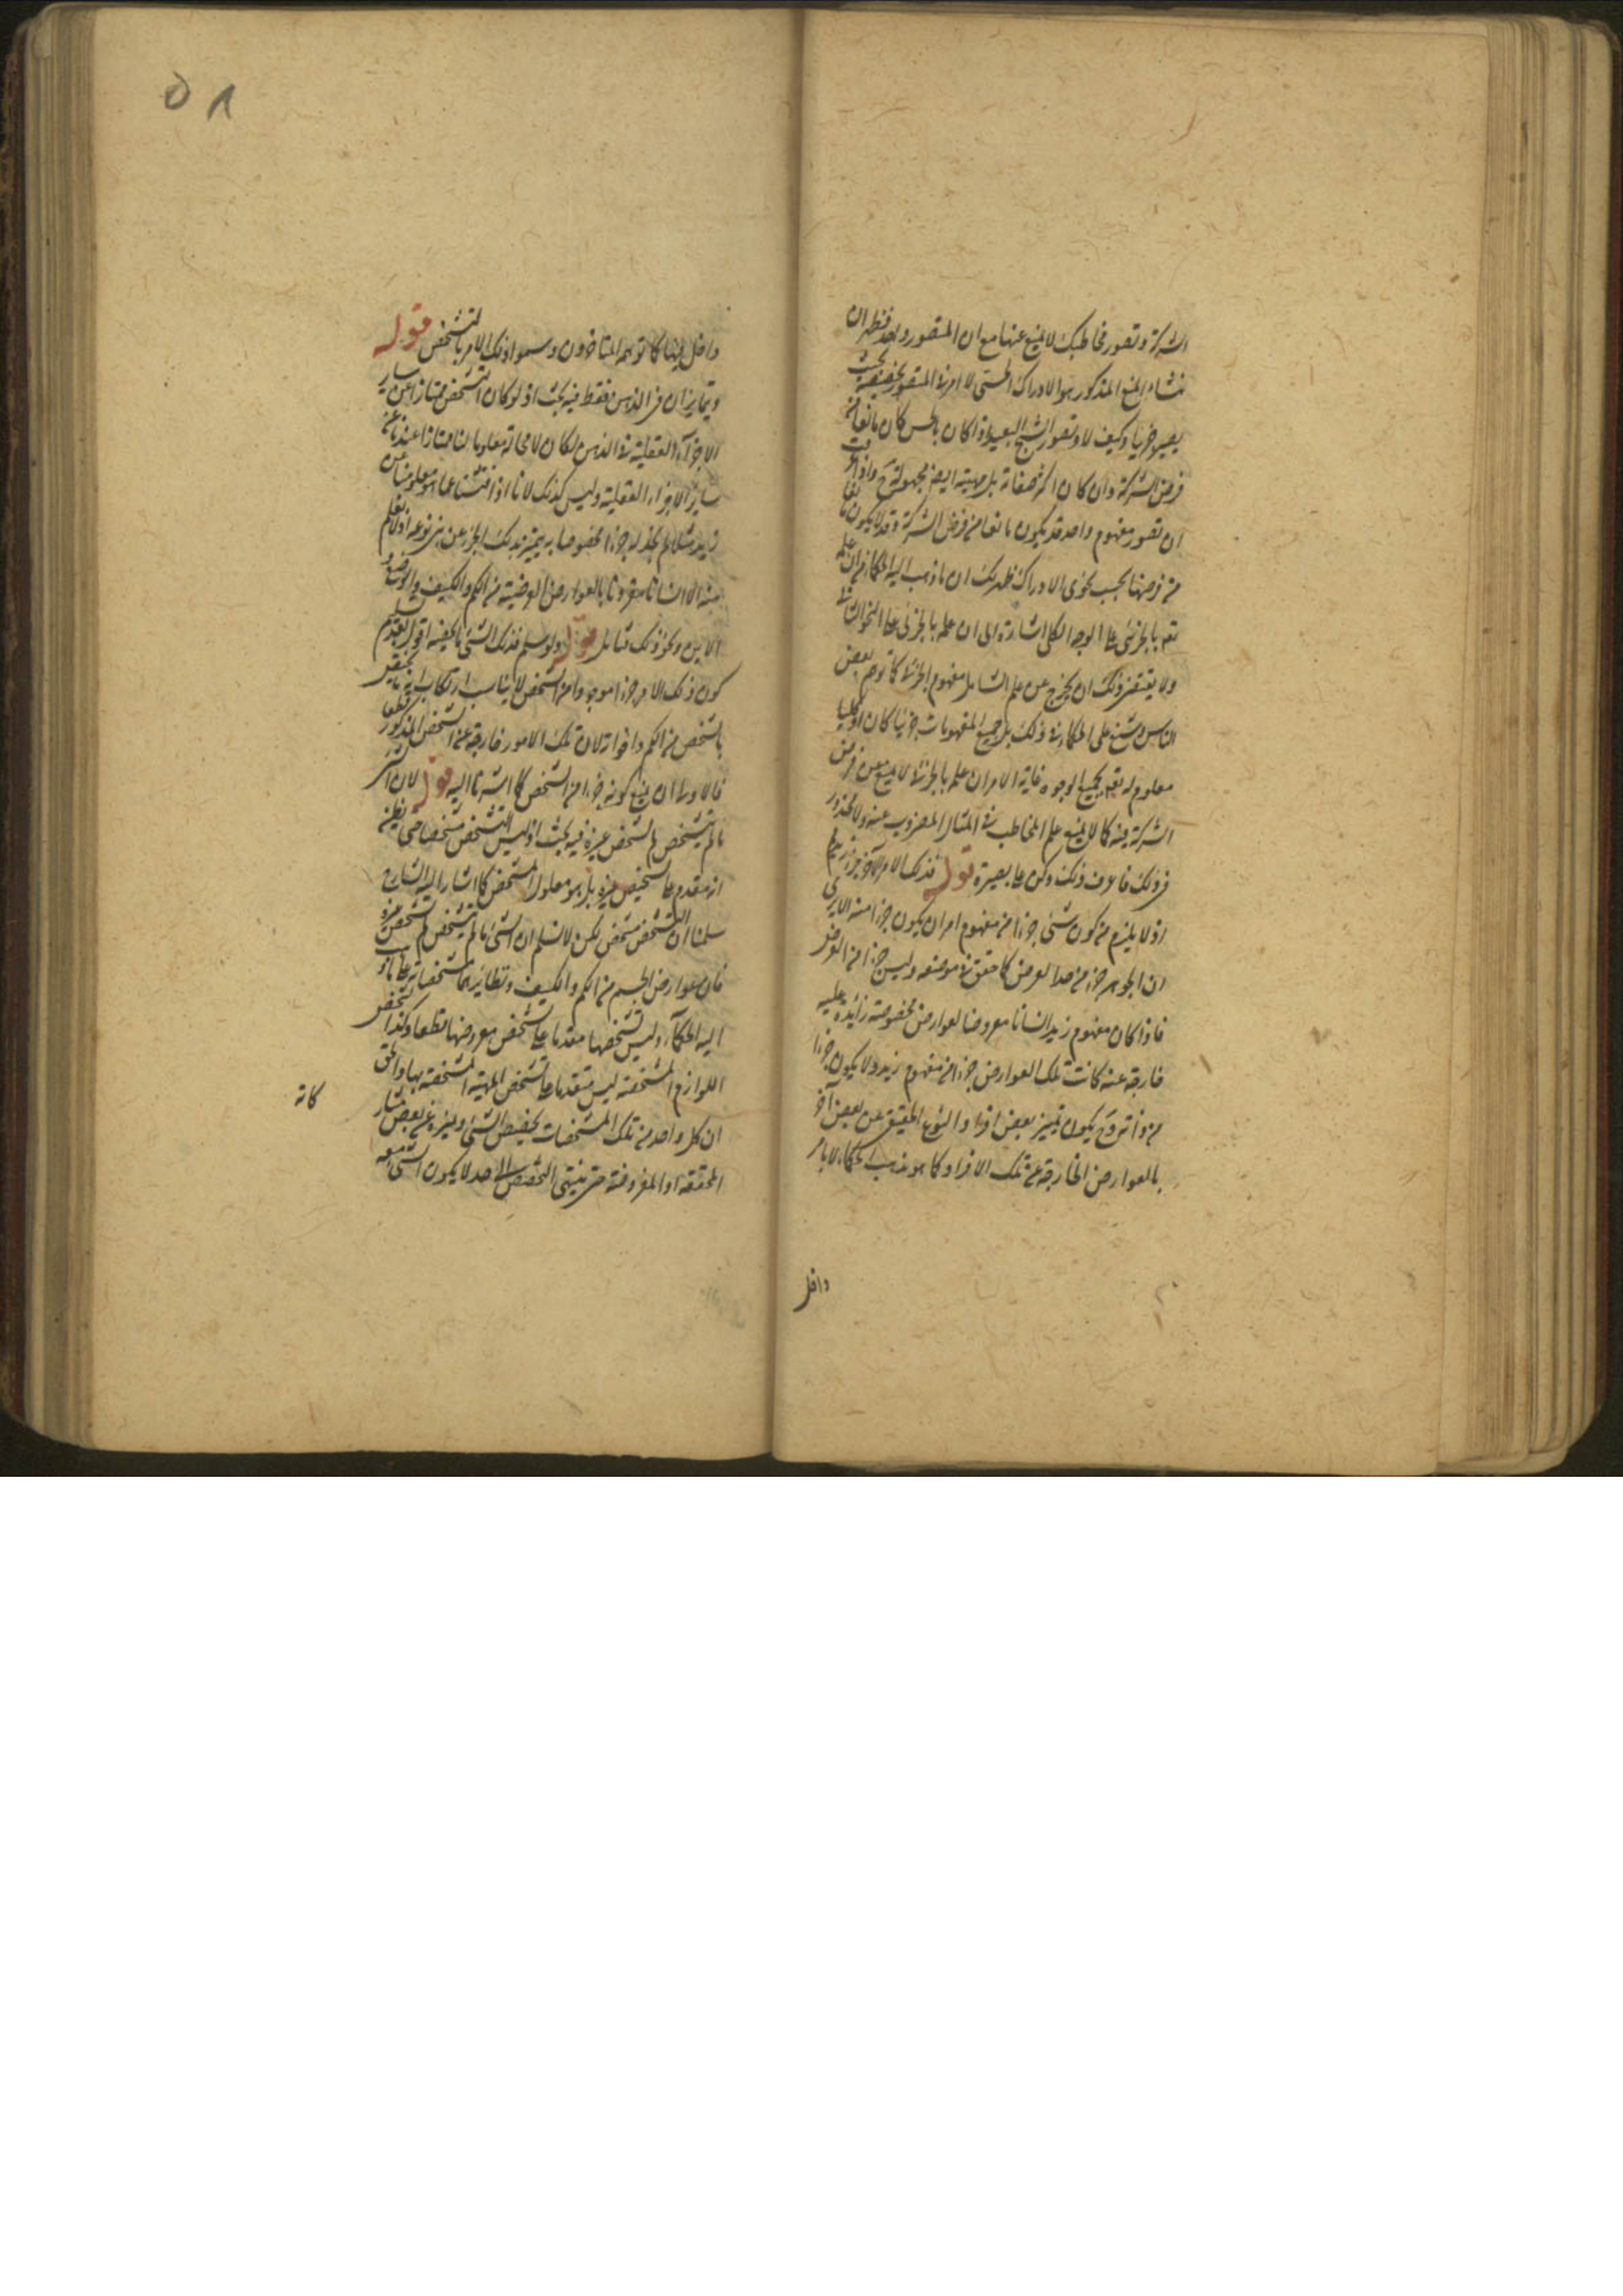 الشركة وتصور مخاطبك لا يمنع عنها مع ان المتصور واحد فظهر ان
منشاء المنع المذكور هو الادراك الحسي لا امر في المتصور بخصيصه بحيث
يصير جزئيا وكيف لا وتصور الشبح البعيد اذا كان بالحس كان مانعا من
فرض الشركة وان كان اكثر صفاته بل مهيته ايضا مجهولة ح واذا
ان تصور مفهوم واحد قد يكون مانعا من فرض الشركة وقد لا يكون مانعا
من فرضها بحسب نحوى الادراك ظهر لك ان ما ذهب اليه الحكماء من ان علمه
تعم بالجزئي على الوجه الكلي اشارة الى ان علمه بالجزئي على النحو الثاني
ولا يقتضي ذلك ان يخرج عن علم الشامل مفهوم الجزئي كما توهم بعض
الناس وشنع على الحكماء في ذلك بل جميع المفهومات جزئيا كان او كليا
معلوم له تعم بجميع الوجوه غاية الامر ان علمه بالجزئي لا يمنع عن فرض
الشركة فيه كما لا يمنع علم المخاطب في المثال المضروب عنه ولا محذور
في ذلك فاعرف ذلك وكن على بصيرة قوله فذلك الامر الآخر جزء زيد
اذ لا يلزم من كون شئ جزءا من مفهوم امر ان يكون جزءا منه الا يرى
ان الجوهر جزء من حد العرض كما حقق في موضعه وليس جزءا من العرض
فاذا كان مفهوم زيد انسانا معروضا لعوارض مخصوصة زائدة عليه
خارجة عنه كانت تلك العوارض جزءا من مفهوم زيد ولا يكون جزءا
من ذاته وح يكون تميز بعض افراد النوع الحقيقي عن بعض آخر
بالعوارض الخارجة عن تلك الافراد كما هو مذهب الحكماء لا بامر
داخل
داخل فيها كما توهمه المتاخرون وسموا ذلك الامر بالتشخص قوله
ويتمايزان في الذهن فقط فيه بحث اذ لو كان التشخص ممتازا عن سائر
الاجزاء العقلية في الذهن لكان لا محالة معلوما لنا ممتازا عندنا عن
سائر الاجزاء العقلية وليس كذلك لانا اذا فتشنا عما هو معلومنا عن
زيد مثلا لم نجد له جزءا مخصوصا به يتميز بذلك الجزء عن بني نوعه اذ لا نعلم
منه الا انسانا مقرونا بالعوارض العرضية من الكم والكيف والوضع و
الاين ونحو ذلك تامل قوله ولو سلم فذلك الشئ ما يكفيه اقول بعد تسليم
كون ذلك الامر جزءا موجودا من الشخص لا يناسب ارتكاب انه
بالتشخص من الكم واخواته لان تلك الامور خارجة عن الشخص المذكور قطعا
فالاولى ان يمنع كونه جزءا من الشخص كما اشرنا اليه قوله لان الشئ
ما لم يتشخص لم يشخص غيره فيه بحث اذ ليس التشخص مشخصا حتى يظن
انه مقدم على تشخيص غيره بل هو معلول المشخص كما اشار اليه الشارح
سلمنا ان التشخص مشخص لكن لا نسلم ان الشئ ما لم يتشخص لم يشخص غيره
فان عوارض الجسم من الكم والكيف ونظايرهما مشخصاته على ما ذهب
اليه الحكماء وليس تشخصها مقدما على تشخص معروضها قطعا وكذا تشخص
اللوازم المشخصة ليس متقدما على تشخص المهية المشخصة بها والحق
ان كل واحد من تلك المشخصات يخصص الشئ ويميزه عن بعض مشاركاته
المحققة او المفروضة حتى ينتهي التخصص الى حد لا يكون الشئ معه